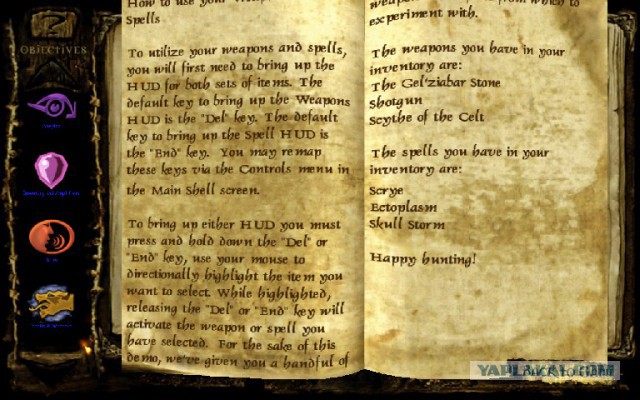 OBJECTIVES
How to use your
Spells
To utilize your weapons and spells,
you will first need to bring up the
HUD for both sets of items. The
default key to bring up the Weapons
HUD is the "Del" key. The default
key to bring up the Spell HUD is
the "End" key. You may remap
these keys via the Controls menu in
the Main Shell screen.
To bring up either HUD you must
press and hold down the "Del" or
"End" key, use your mouse to
directionally highlight the item you
want to select. While highlighted,
releasing the "Del" or "End" key will
activate the weapon or spell you
have selected. For the sake of this
demo, we've given you a handful of
from which to
experiment with.
The weapons you have in your
inventory are:
The Gel'ziabar Stone
Shotgun
Scythe of the Celt
The spells you have in your
inventory are:
Scrye
Ectoplasm
Skull Storm
Happy hunting!